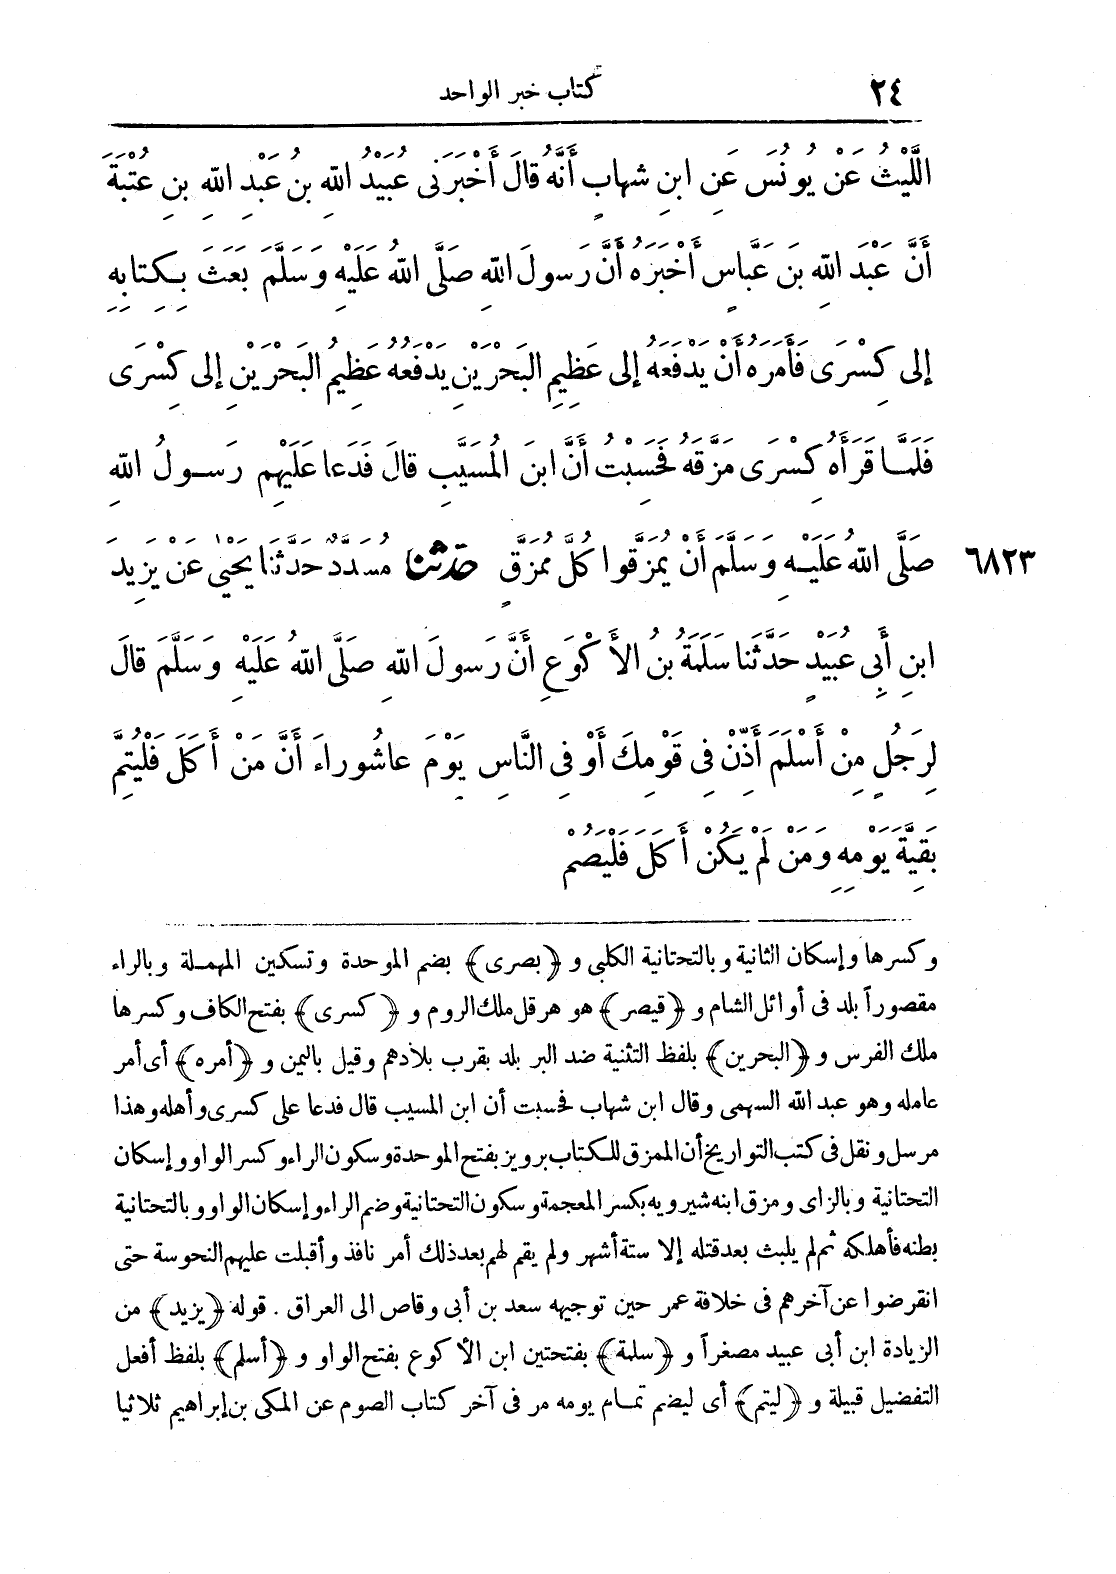 ٢٤ كتاب خبر الواحد
اللَّيْثُ عَنْ يُونُسَ عَنِ ابنِ شِهابٍ أَنَّهُ قالَ أَخْبَرَنِى عُبَيْدُ اللهِ بنُ عَبْدِ اللهِ بنِ عُتْبَةَ
أَنَّ عَبْدَ اللهِ بنَ عَبَّاسٍ أَخْبَرَهُ أَنَّ رَسولَ اللهِ صَلَّى اللهُ عَلَيْهِ وَسَلَّمَ بَعَثَ بِكِتابِهِ
إلى كِسْرَى فَأَمَرَهُ أَنْ يَدْفَعَهُ إلى عَظِيمِ البَحْرَيْنِ يَدْفَعُهُ عَظِيمُ البَحْرَيْنِ إلى كِسْرَى
فَلَمَّا قَرَأَهُ كِسْرَى مَزَّقَهُ فَحَسِبْتُ أَنَّ ابنَ المُسَيَّبِ قالَ فَدَعا عَلَيْهِمْ رَسولُ اللهِ
صَلَّى اللهُ عَلَيْهِ وَسَلَّمَ أَنْ يُمَزَّقُوا كُلَّ مُمَزَّقٍ حَدَّثَنَا مُسَدَّدٌ حَدَّثَنا يَحْيَى عَنْ يَزِيدَ ٦٨٢٣
ابنِ أَبِى عُبَيْدٍ حَدَّثَنا سَلَمَةُ بنُ الأَكْوَعِ أَنَّ رَسولَ اللهِ صَلَّى اللهُ عَلَيْهِ وَسَلَّمَ قالَ
لِرَجُلٍ مِنْ أَسْلَمَ أَذِّنْ فِى قَوْمِكَ أَوْ فِى النَّاسِ يَوْمَ عاشُوراءَ أَنَّ مَنْ أَكَلَ فَلْيُتِمَّ
بَقِيَّةَ يَوْمِهِ وَمَنْ لَمْ يَكُنْ أَكَلَ فَلْيَصُمْ
وكسرها وإسكان الثانية وبالتحتانية الكلبى و ﴿بصرى﴾ بضم الموحدة وتسكين المهملة وبالراء
مقصوراً بلد فى أوائل الشام و ﴿قيصر﴾ هو هرقل ملك الروم و ﴿كسرى﴾ بفتح الكاف وكسرها
ملك الفرس و ﴿البحرين﴾ بلفظ التثنية ضد البر بلد بقرب بلادهم وقيل باليمن و ﴿أمره﴾ أى أمر
عامله وهو عبد الله السهمى وقال ابن شهاب فحسبت أن ابن المسيب قال فدعا على كسرى وأهله وهذا
مرسل ونقل فى كتب التواريخ أن الممزق للكتاب برويز بفتح الموحدة وسكون الراء وكسر الواو وإسكان
التحتانية وبالزاى ومزق ابنه شيرويه بكسر المعجمة وسكون التحتانية وضم الراء وإسكان الواو وبالتحتانية
بطنه فأهلكه ثم لم يلبث بعد قتله إلا ستة أشهر ولم يقم لهم بعد ذلك أمر نافذ وأقبلت عليهم النحوسة حتى
انقرضوا عن آخرهم فى خلافة عمر حين توجيهه سعد بن أبى وقاص الى العراق . قوله ﴿يزيد﴾ من
الزيادة ابن أبى عبيد مصغراً و ﴿سلمة﴾ بفتحتين ابن الأكوع بفتح الواو و ﴿أسلم﴾ بلفظ أفعل
التفضيل قبيلة و ﴿ليتم﴾ أى ليضم تمام يومه مر فى آخر كتاب الصوم عن المكى بن إبراهيم ثلاثيا